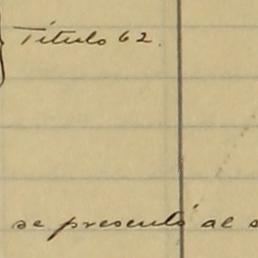 Título 62.
se presentó al